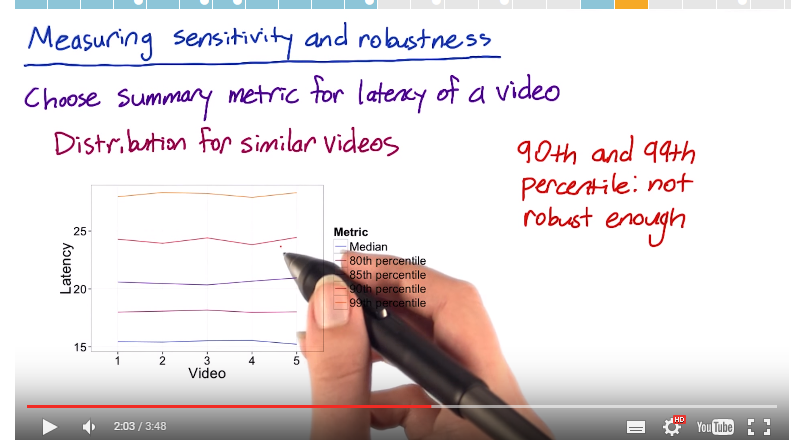 Measuring sensitivity and robustness
Choose summary metric for latency of a video
Distribution for similar videos
90th and 99th
percentile: not
robust enough
Latency
25
20
15
1 2 3 4 5
Video
Metric
Median
80th percentile
85th percentile
90th percentile
99th percentile
2:03 / 3:48
HD
YouTube